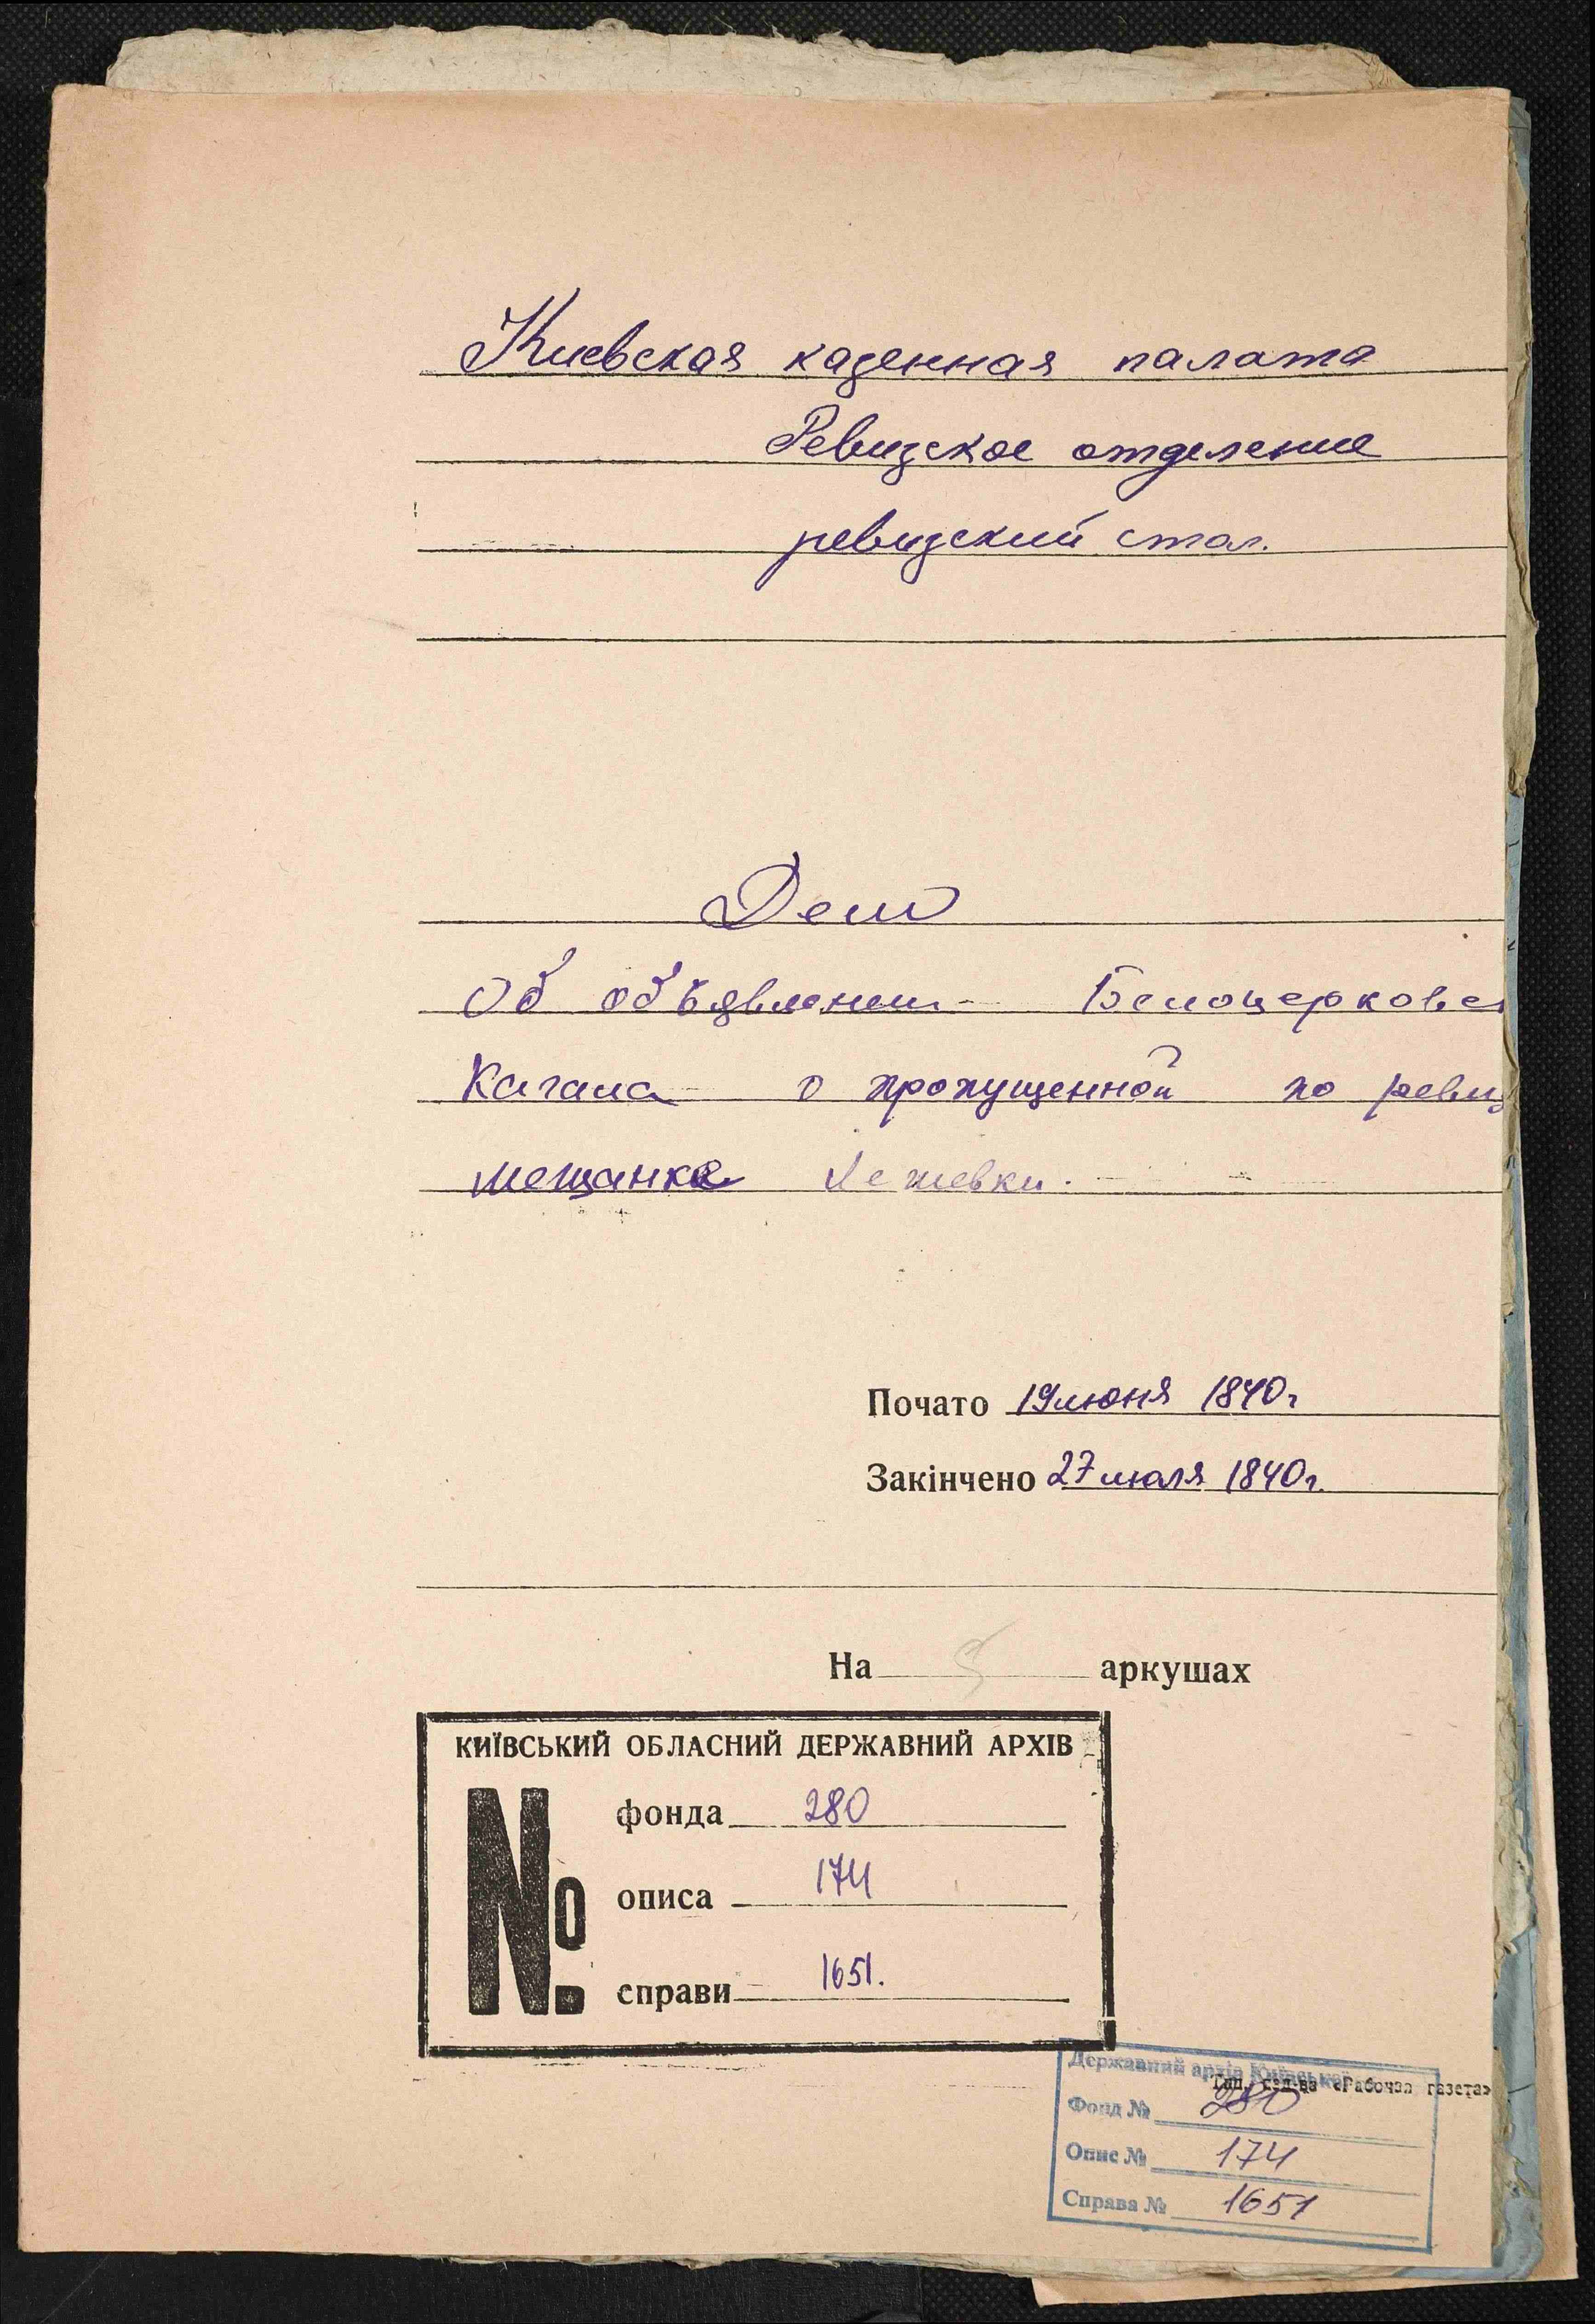 Киевская казенная палата
Ревизское отделение
ревизский стол.
Дело
Об объявлении Белоцерковс
Кагала о пропущенной по ревиз
мещанке
Почато 19 июня 1840 г
Закінчено 27 июля 1840 г.
На 5 аркушах
КИЇВСЬКИЙ ОБЛАСНИЙ ДЕРЖАВНИЙ АРХІВ
№
фонда 280
описа 174
справи 1651.
Державний архів Київської
Тип. изд-ва «Рабочая газета»
Фонд № 280
Опис № 174
Справа № 1651